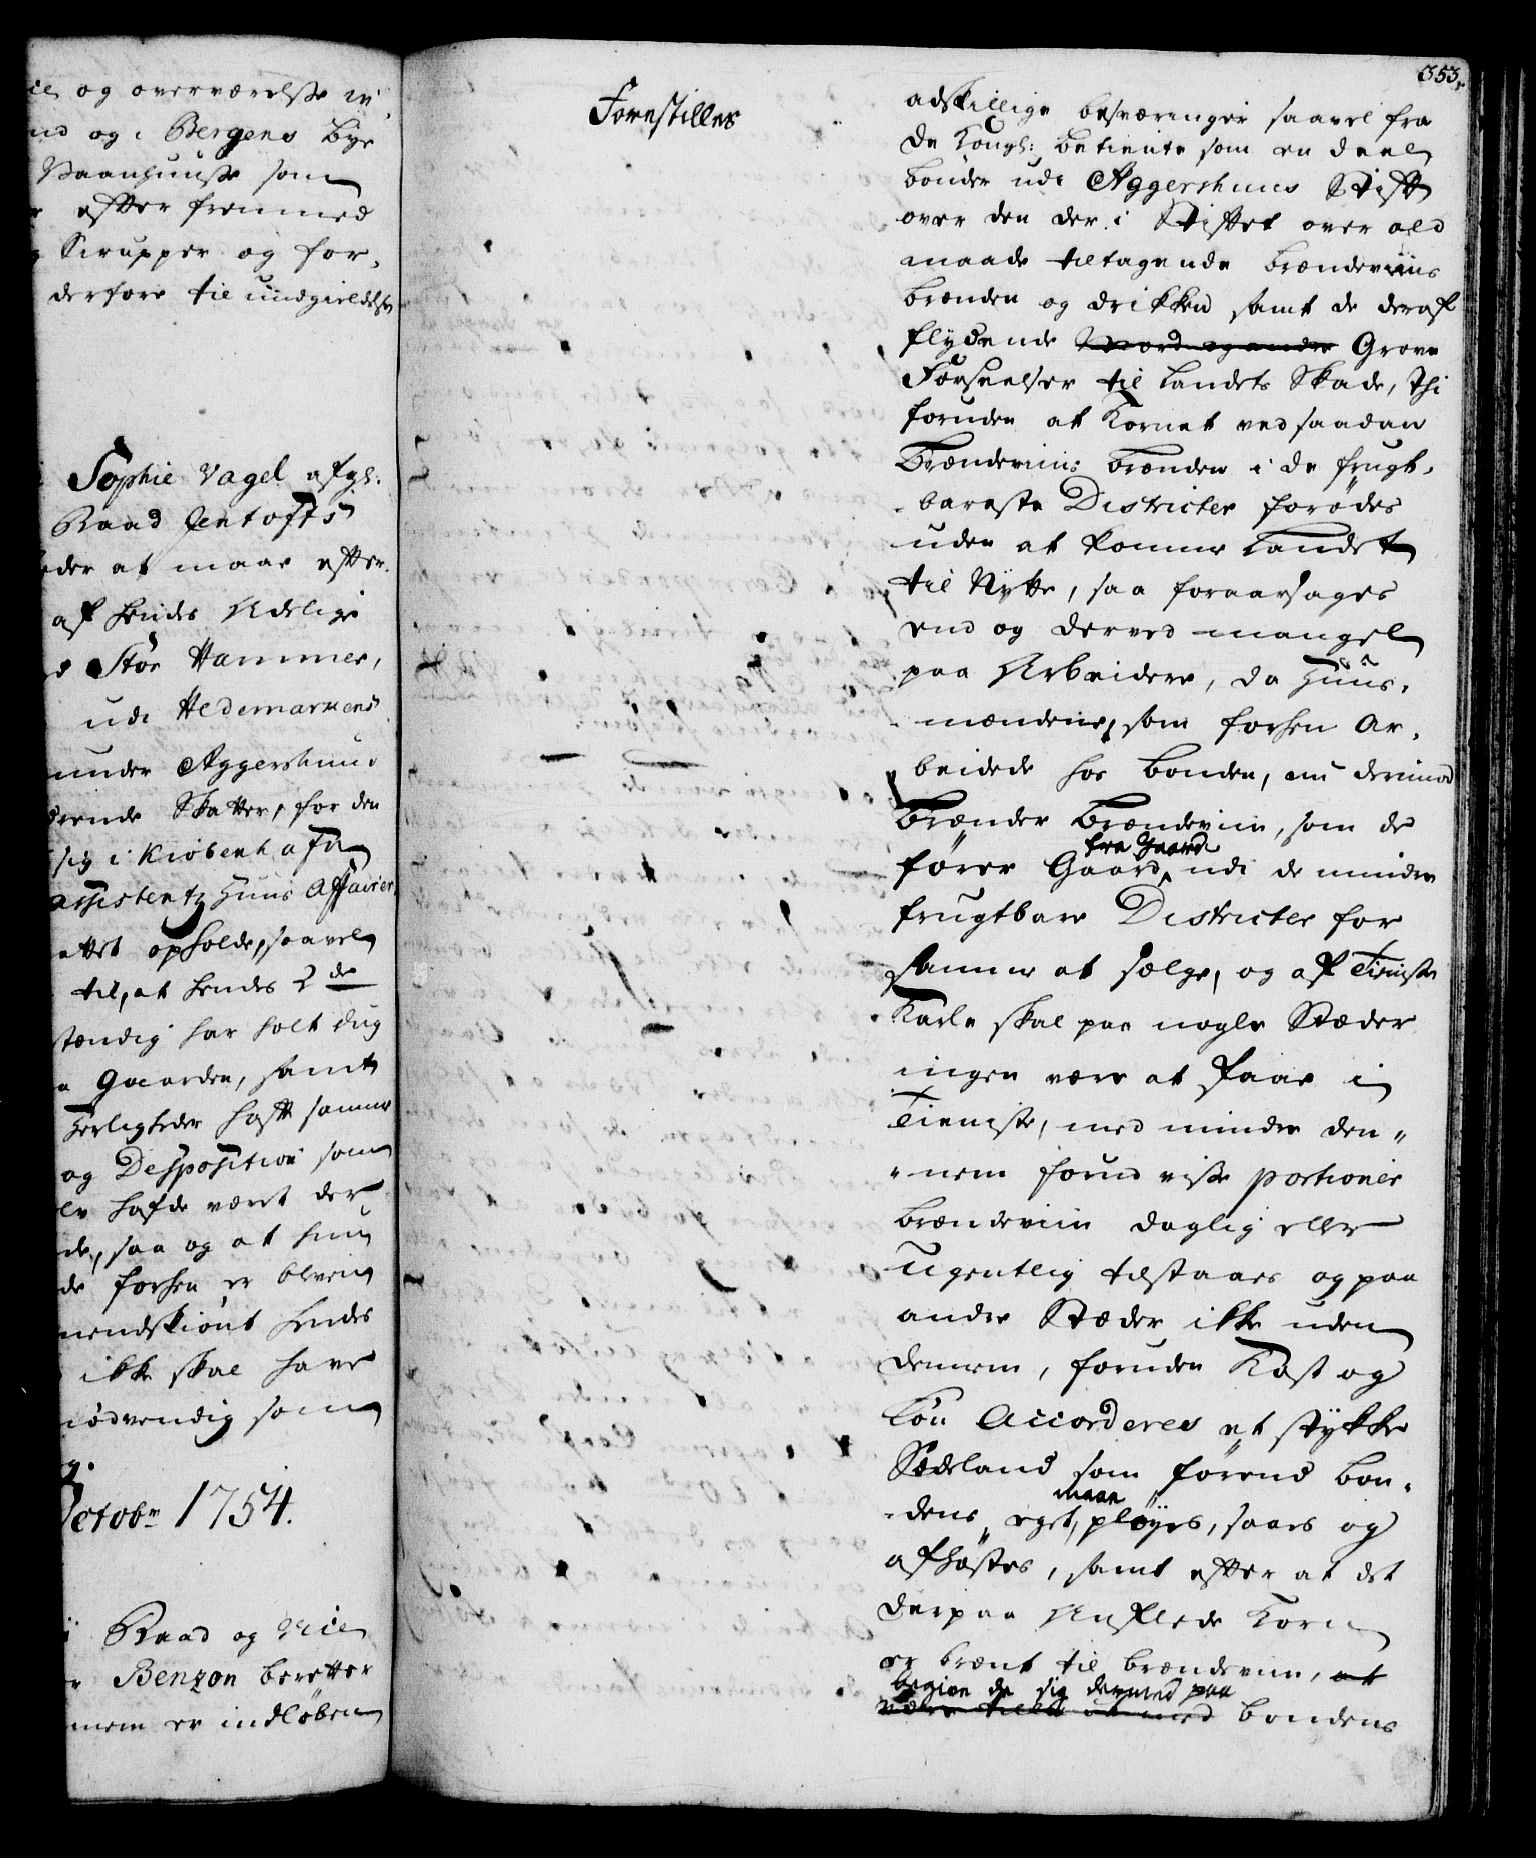 og overværelsse
og i Bergens Bye
Raadhuusse som
efter fremmed
Sirupper og for-
derfore til undgieldelse
Sophie Vagel afgl:
Raad Jentofts
at maae efter
af hendes Adelige
Stor Hammer,
udi Hedemarkens
under Aggershuus
Skatter, for den
sig i Kiøbenhafn
assistentz Huus Affairer
opholde, saavel
til, at hendes 2de
stændig har holt dug
Gaarden, samt
Herligheder haft samme
og Desposition som
hafde været der
de, saa og at hun
de forhen er bleven
uendskiønt hendes
ikke skal have
nødvendig som
Octobr 1754.
Raad og Vice
Benzon beretter
er indløben
353.
Forestilles
adskillige besværinger saavel fra
de Kongl: betiente som en deel
bønder udi Aggershuus Stift
over den der i Stiftet over ald
maade tiltagende brændeviins
brænden og drikken samt de deraf
flydende Mord og andre Grove
Forseelser til Landets Skade, thi
foruden at Kornet ved saadan
Brændeviins brænden i de frugt-
-bareste Districter forødes
uden at komme Landet
til Nytte, saa foraarsages
end og derved mangel
paa Arbeidere, da Huus-
-mændene, som forhen Ar-
beidede hos bonden, nu derimod
Brænder Brændeviin, som de
fra Gaard
fører Gaard udi de mindre
frugtbare Districter for
samme at sælge, og af Tieniste
Karle skal paa nogle Stæder
ingen være at faae i
Tieniste, med mindre den-
-nem forud visse portioner
brændeviin daglig eller
Ugentlig tilstaaes og paa
andre Stæder ikke uden
dennem, foruden Kost og
Løn Accorderes et stykke
Sædeland som førend bon-
maae
-dens eget, pløyes, saaes og
afhøstes, samt efter at det
derpaa Auflede Korn
er brænt til brændeviin, at
begive de sig dermed paa
være tillat at med bondens